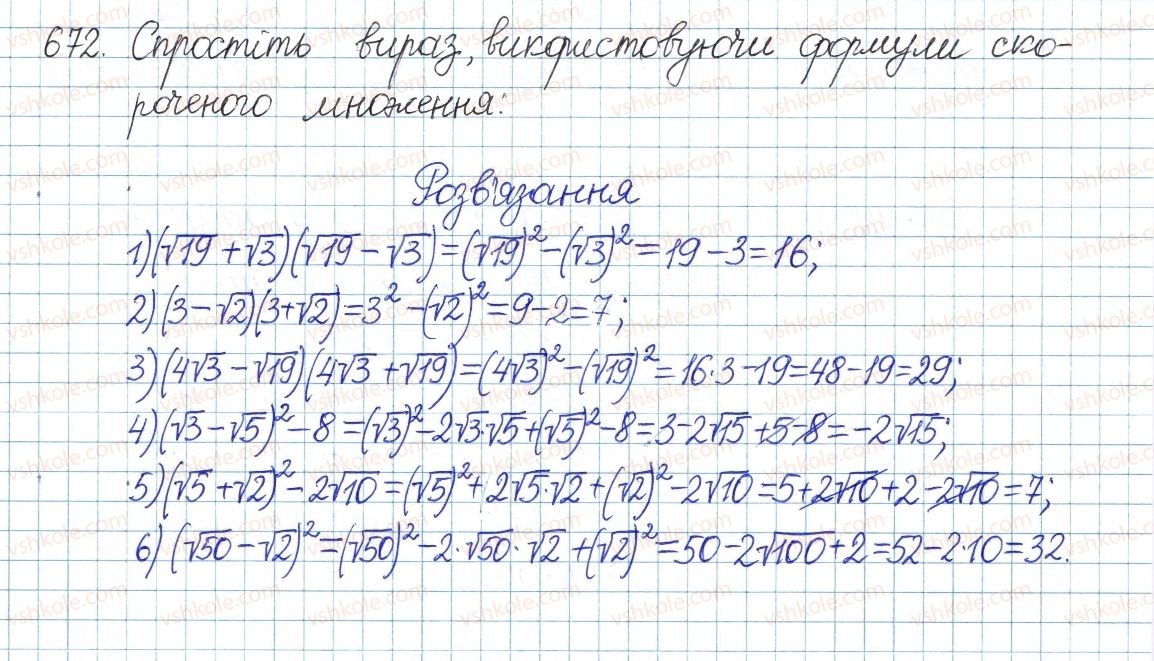 672. Спростіть вираз, використовуючи формули ско-
роченого множення:
Розв'язання
1) (√19 + √3)(√19 − √3) = (√19)² − (√3)² = 19 − 3 = 16;
2) (3 − √2)(3 + √2) = 3² − (√2)² = 9 − 2 = 7;
3) (4√3 − √19)(4√3 + √19) = (4√3)² − (√19)² = 16·3 − 19 = 48 − 19 = 29;
4) (√3 − √5)² − 8 = (√3)² − 2√3·√5 + (√5)² − 8 = 3 − 2√15 + 5 − 8 = −2√15;
5) (√5 + √2)² − 2√10 = (√5)² + 2√5·√2 + (√2)² − 2√10 = 5 + 2√10 + 2 − 2√10 = 7;
6) (√50 − √2)² = (√50)² − 2·√50·√2 + (√2)² = 50 − 2√100 + 2 = 52 − 2·10 = 32.
vshkole.com